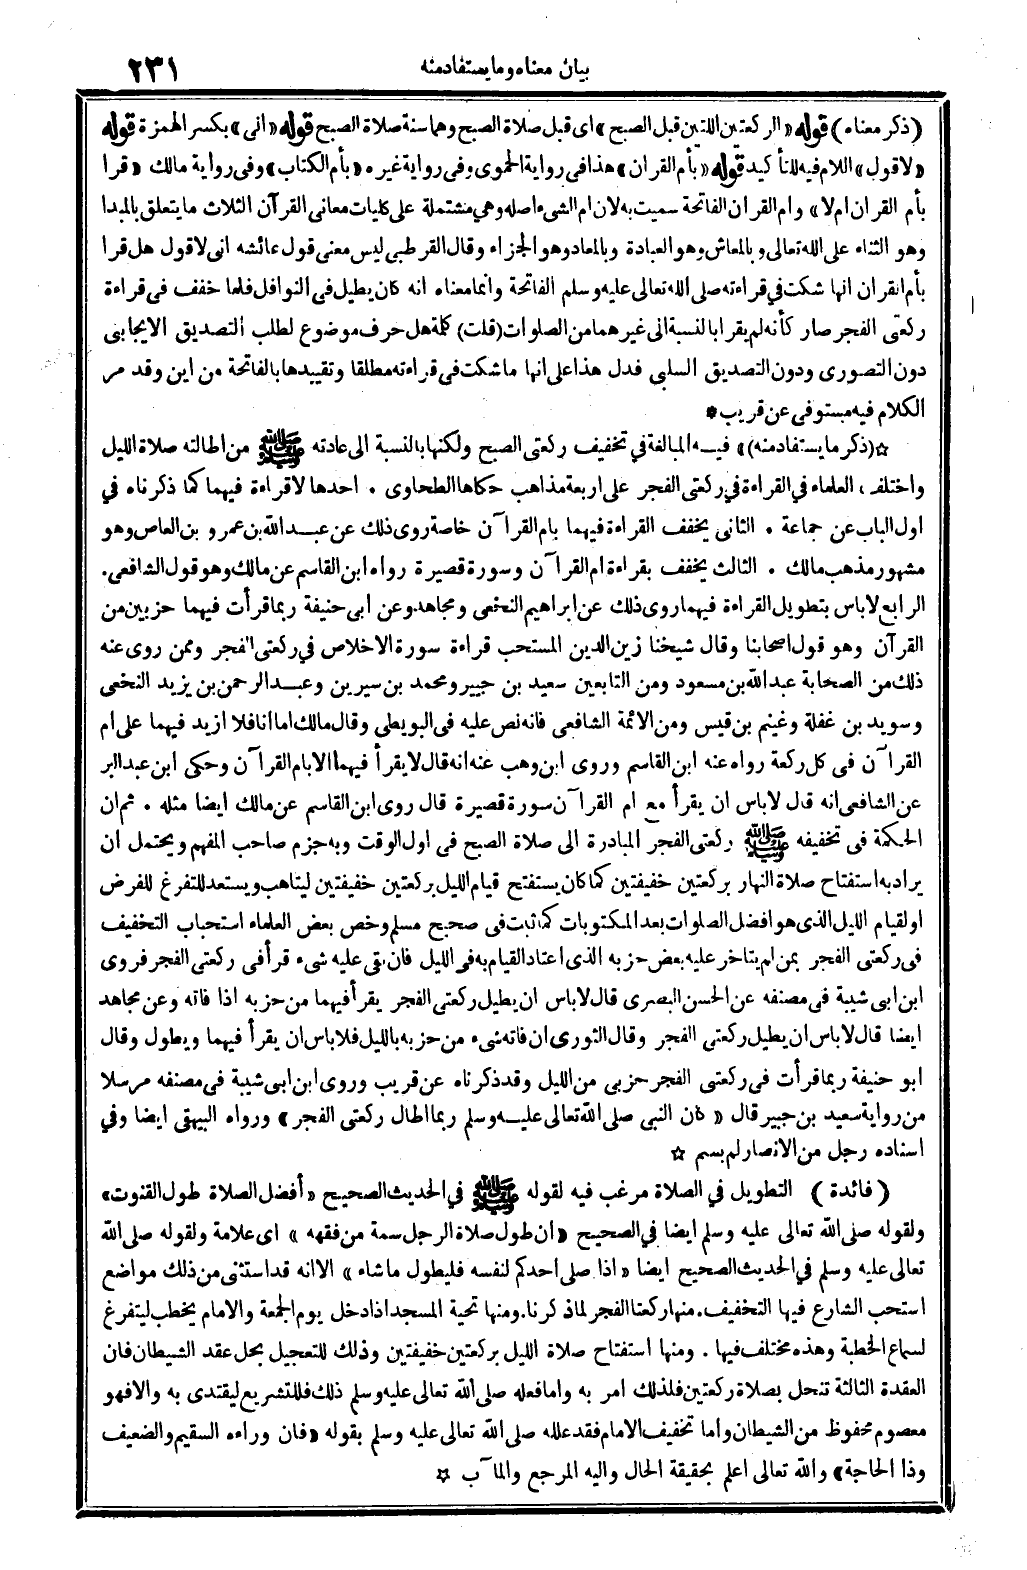 بيان معناه وما يستفاد منه
٢٣١
(ذكر معناه) قوله «الركعتين اللتين قبل الصبح» اى قبل صلاة الصبح وهما سنة صلاة الصبح قوله «انى» بكسر الهمزة قوله
«لاقول» اللام فيه للتأكيد قوله «بأم القران» هذا فى رواية الحموى وفى رواية غيره «بأم الكتاب» وفى رواية مالك «قرا
بأم القران ام لا» وام القران الفاتحة سميت به لان ام الشىء اصله وهى مشتملة على كليات معانى القرآن الثلاث ما يتعلق بالمبدا
وهو الثناء على الله تعالى وبالمعاش وهو العبادة وبالمعاد وهو الجزاء وقال القرطبى ليس معنى قول عائشه انى لاقول هل قرا
بأم القران انها شكت في قراءته صلى الله تعالى عليه وسلم الفاتحة وانما معناه انه كان يطيل فى النوافل فلما خفف فى قراءة
ركعتى الفجر صار كأنه لم يقرا بالنسبة الى غيرهما من الصلوات (قلت) كلمة هل حرف موضوع لطلب التصديق الايجابى
دون التصورى ودون التصديق السلبى فدل هذا على انها ما شكت فى قراءته مطلقا وتقييدها بالفاتحة من اين وقد مر
الكلام فيه مستوفى عن قريب *
☆ (ذكر ما يستفاد منه)» فيه المبالغة في تخفيف ركعتى الصبح ولكنها بالنسبة الى عادته ﷺ من اطالته صلاة الليل
واختلف العلماء في القراءة في ركعتى الفجر على اربعة مذاهب حكاها الطحاوى . احدها لا قراءة فيهما كما ذكرناه في
اول الباب عن جماعة . الثانى يخفف القراءة فيهما بام القرآن خاصة روى ذلك عن عبد الله بن عمرو بن العاص وهو
مشهور مذهب مالك . الثالث يخفف بقراءة ام القرآن وسورة قصيرة رواه ابن القاسم عن مالك وهو قول الشافعى.
الرابع لا باس بتطويل القراءة فيهما روى ذلك عن ابراهيم النخعى ومجاهد وعن ابى حنيفة ربما قرأت فيهما حزبين من
القرآن وهو قول اصحابنا وقال شيخنا زين الدين المستحب قراءة سورة الاخلاص في ركعتى الفجر وممن روى عنه
ذلك من الصحابة عبد الله بن مسعود ومن التابعين سعيد بن جبير ومحمد بن سيرين وعبد الرحمن بن يزيد النخعى
وسويد بن غفلة وغنيم بن قيس ومن الائمة الشافعى فانه نص عليه فى البويطى وقال مالك اما انا فلا ازيد فيهما على ام
القرآن فى كل ركعة رواه عنه ابن القاسم وروى ابن وهب عنه انه قال لا يقرأ فيهما الا بام القرآن وحكى ابن عبد البر
عن الشافعى انه قال لا باس ان يقرأ مع ام القرآن سورة قصيرة قال روى ابن القاسم عن مالك ايضا مثله . ثم ان
الحكمة فى تخفيفه ﷺ ركعتى الفجر المبادرة الى صلاة الصبح فى اول الوقت وبه جزم صاحب المفهم ويحتمل ان
يراد به استفتاح صلاة النهار بركعتين خفيفتين كما كان يستفتح قيام الليل بركعتين خفيفتين ليتاهب ويستعد للتفرغ للفرض
او لقيام الليل الذى هو افضل الصلوات بعد المكتوبات كما ثبت فى صحيح مسلم وخص بعض العلماء استحباب التخفيف
فى ركعتى الفجر بمن لم يتاخر عليه بعض حزبه الذى اعتاد القيام به فى الليل فان بقى عليه شىء قرأ فى ركعتى الفجر فروى
ابن ابى شيبة فى مصنفه عن الحسن البصرى قال لا باس ان يطيل ركعتى الفجر يقرأ فيهما من حزبه اذا فاته وعن مجاهد
ايضا قال لا باس ان يطيل ركعتى الفجر وقال الثورى ان فاته شىء من حزبه بالليل فلا باس ان يقرأ فيهما ويطول وقال
ابو حنيفة ربما قرأت فى ركعتى الفجر حزبى من الليل وقد ذكرناه عن قريب وروى ابن ابى شيبة فى مصنفه مرسلا
من رواية سعيد بن جبير قال «كان النبى صلى الله تعالى عليه وسلم ربما اطال ركعتى الفجر» ورواه البيهقى ايضا وفي
اسناده رجل من الانصار لم يسم ☆
(فائدة) التطويل في الصلاة مرغب فيه لقوله ﷺ في الحديث الصحيح «أفضل الصلاة طول القنوت»
ولقوله صلى الله تعالى عليه وسلم أيضا في الصحيح «ان طول صلاة الرجل سمة من فقهه» اى علامة ولقوله صلى الله
تعالى عليه وسلم في الحديث الصحيح ايضا «اذا صلى احدكم لنفسه فليطول ما شاء» الا انه قد استثنى من ذلك مواضع
استحب الشارع فيها التخفيف. منها ركعتا الفجر لما ذكرنا. ومنها تحية المسجد اذا دخل يوم الجمعة والامام يخطب ليتفرغ
لسماع الخطبة وهذه مختلف فيها . ومنها استفتاح صلاة الليل بركعتين خفيفتين وذلك للتعجيل بحل عقد الشيطان فان
العقدة الثالثة تنحل بصلاة ركعتين فلذلك امر به واما فعله صلى الله تعالى عليه وسلم ذلك فللتشريع ليقتدى به والا فهو
معصوم محفوظ من الشيطان واما تخفيف الامام فقد علله صلى الله تعالى عليه وسلم بقوله «فان وراءه السقيم والضعيف
وذا الحاجة» والله تعالى اعلم بحقيقة الحال واليه المرجع والمآب ☆